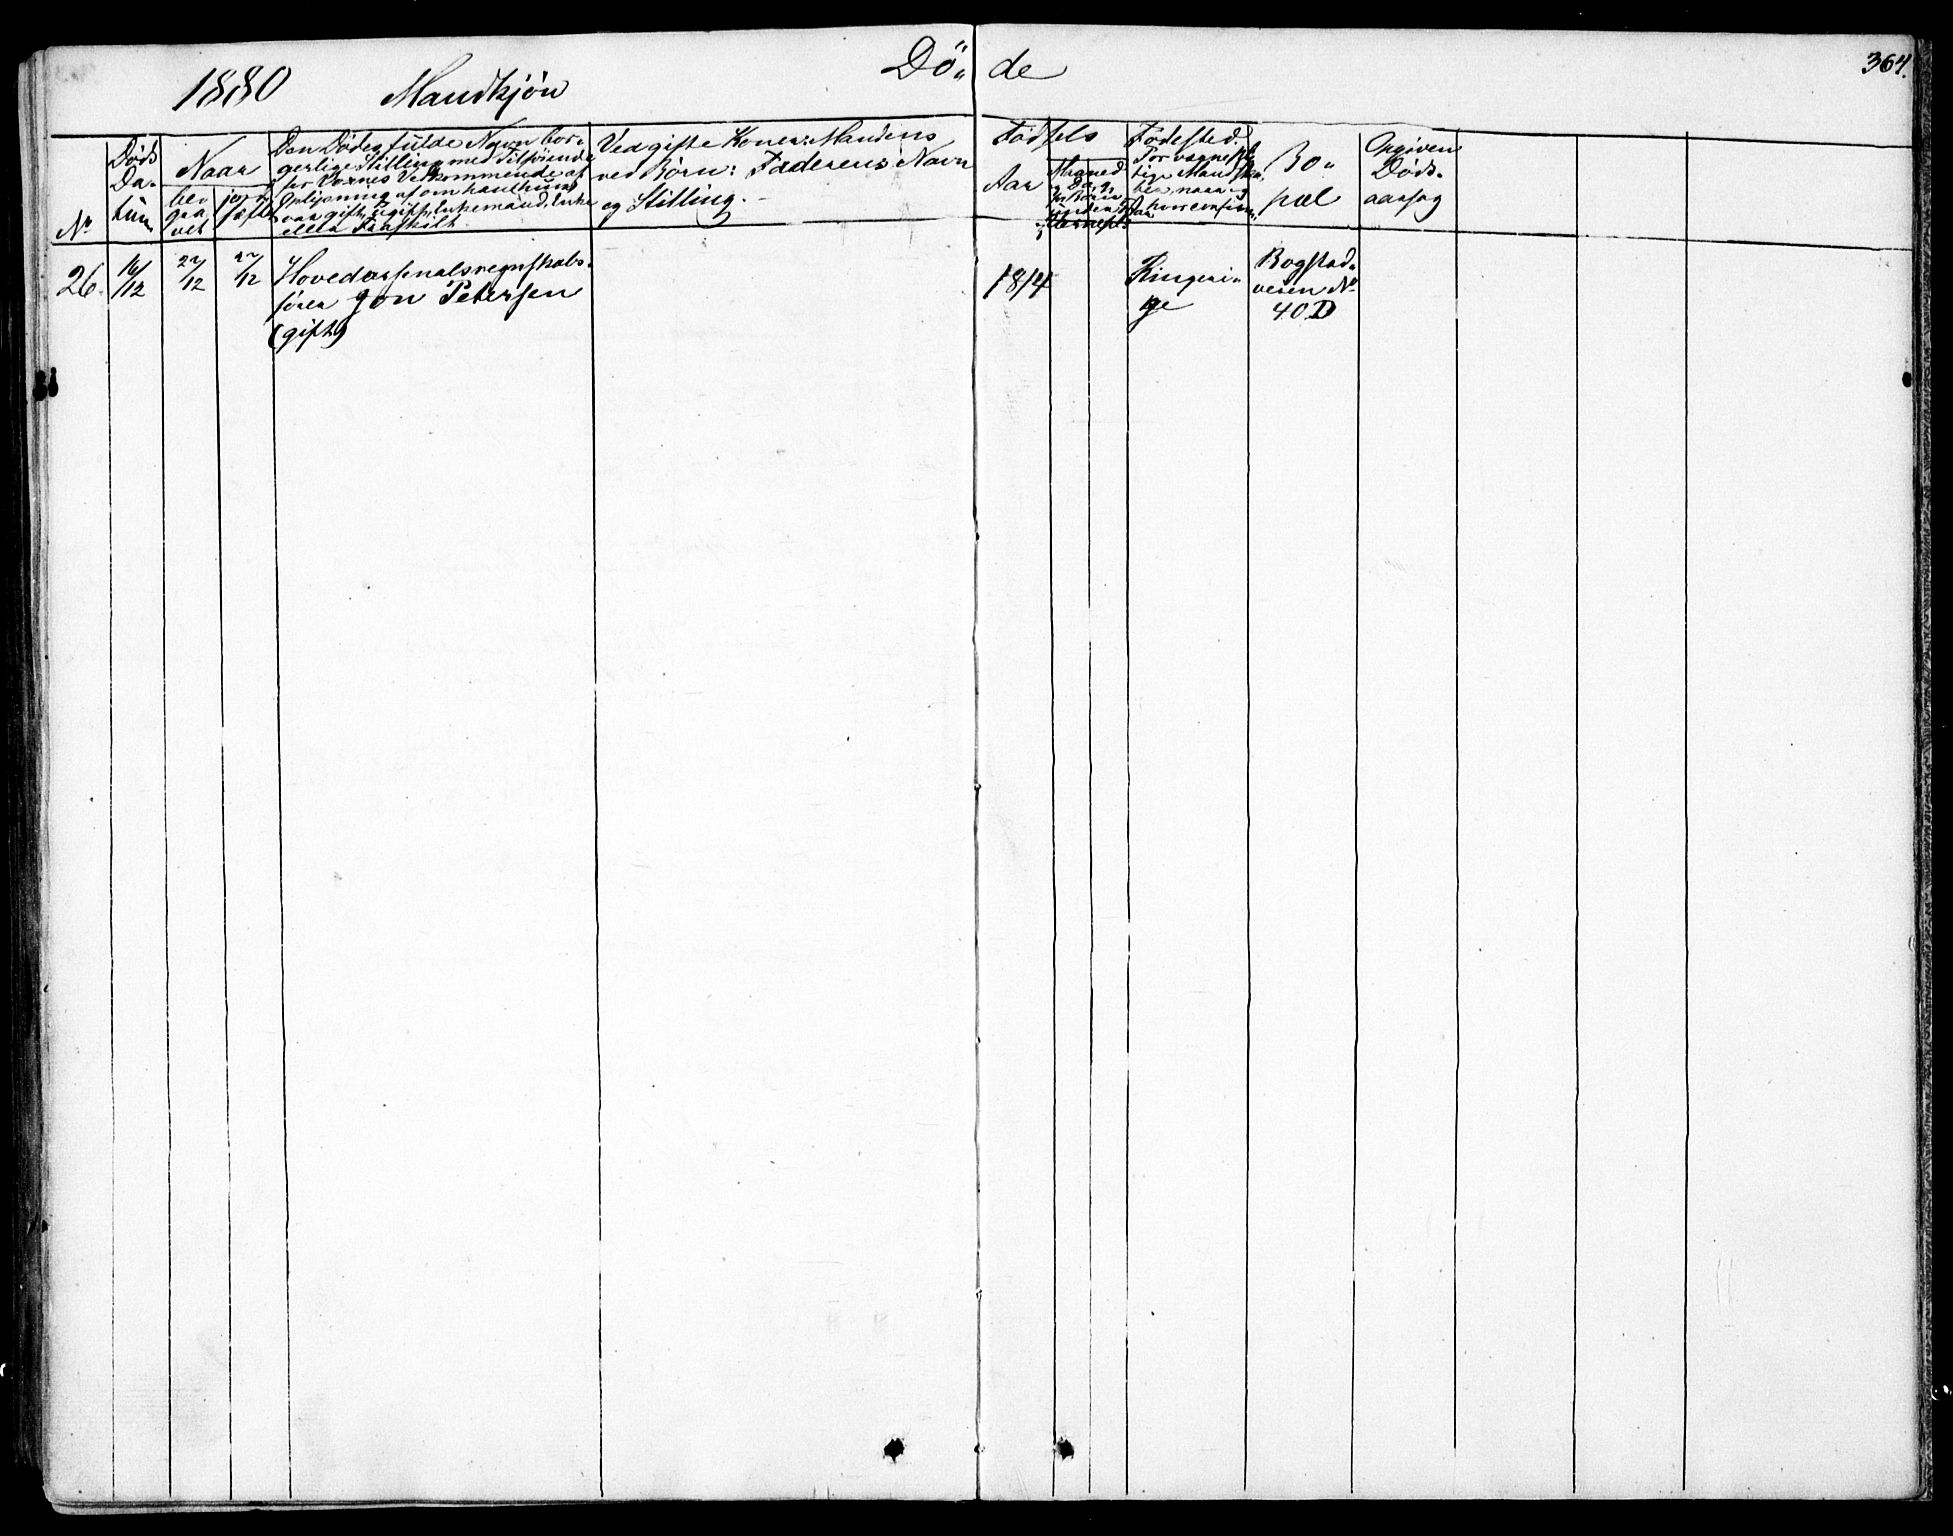 1880 Mandkjön Dö„ de 364.
No
Døds
Da„
tum
Naar
be„
gra„
vet
jord„
fæstet
Den Dødes fulde Navn, bor„
gerlige Stilling med Tilføiende
for Voxnes Vedkommende af
Oplysning af om han (hun)
var gift, ugift, Enkemand, Enke
eller Fraskilt.
Ved gifte Koner: Mandens
ved Børn: Faderens Navn
og Stilling.
Fødsels
Aar
Maaned
Fødested.
For værneplig„
tige Mandskaber
Bo„
pæl
Opgiven
Døds„
aarsag
26.
16/12
22/12
22/12
Hovedarsenalsregnskabs„
fører Jon Petersen
(gift)
1814
Ringeri„
ge
Bogstad„
veien No
40 D